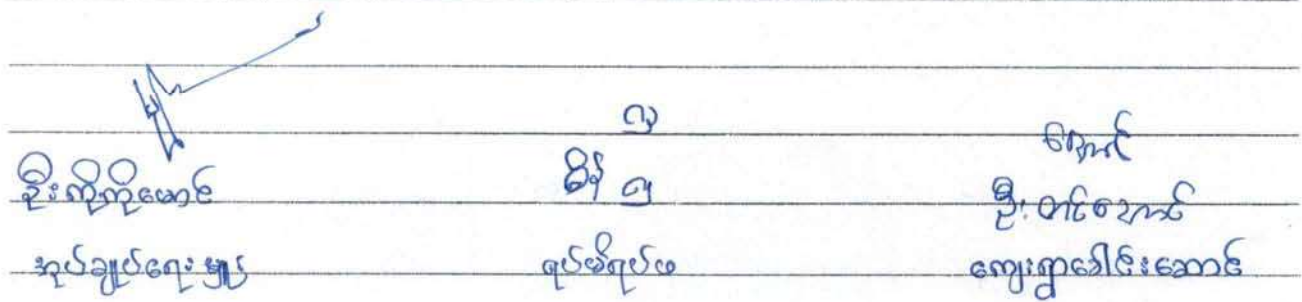 ဦးကိုကိုမောင်
အုပ်ချုပ်ရေးမှူး
မိန်
ရပ်မိရပ်ဖ
အောင်
ဦးတင်အောင်
ကျေးရွာခေါင်းဆောင်